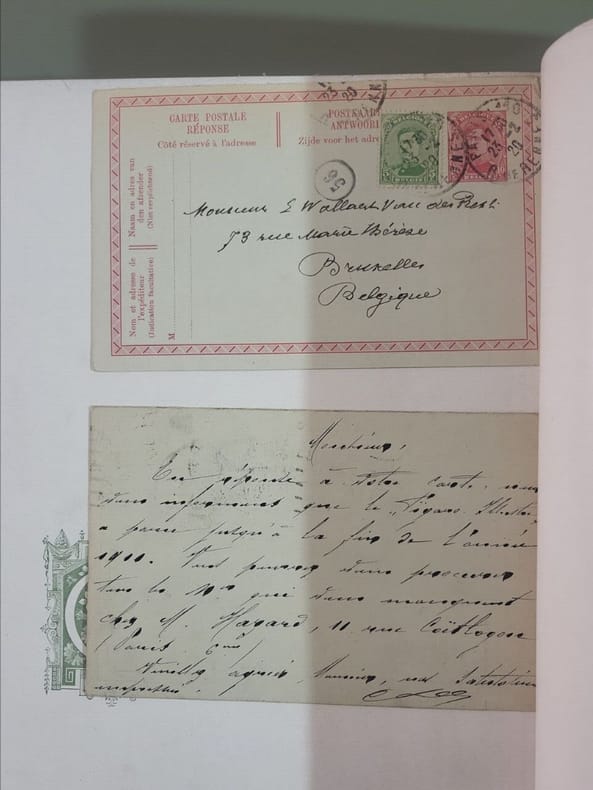 CARTE POSTALE
RÉPONSE
Côté réservé à l'adresse
POSTKAART
ANTWOORD
Zijde voor het adre
Naam en adres van
den afzender
(Niet verplichtend)
Nom et adresse de
l'expéditeur
(Indication facultative)
M
56
Monsieur E Wallaert Van der Rest.
73 rue Marie Thérèse
Bruxelles
Belgique
Monsieur,
En réponse à votre carte, nous
vous informons que le "Figaro Illustré"
a paru jusqu'à la fin de l'année
1911. Vous pouvez vous procurer
tous les Nos qui vous manquent
chez M. Hazard, 11 rue Coëtlogon
Paris 6me
Veuillez agréer, Monsieur, nos salutations
empressées.